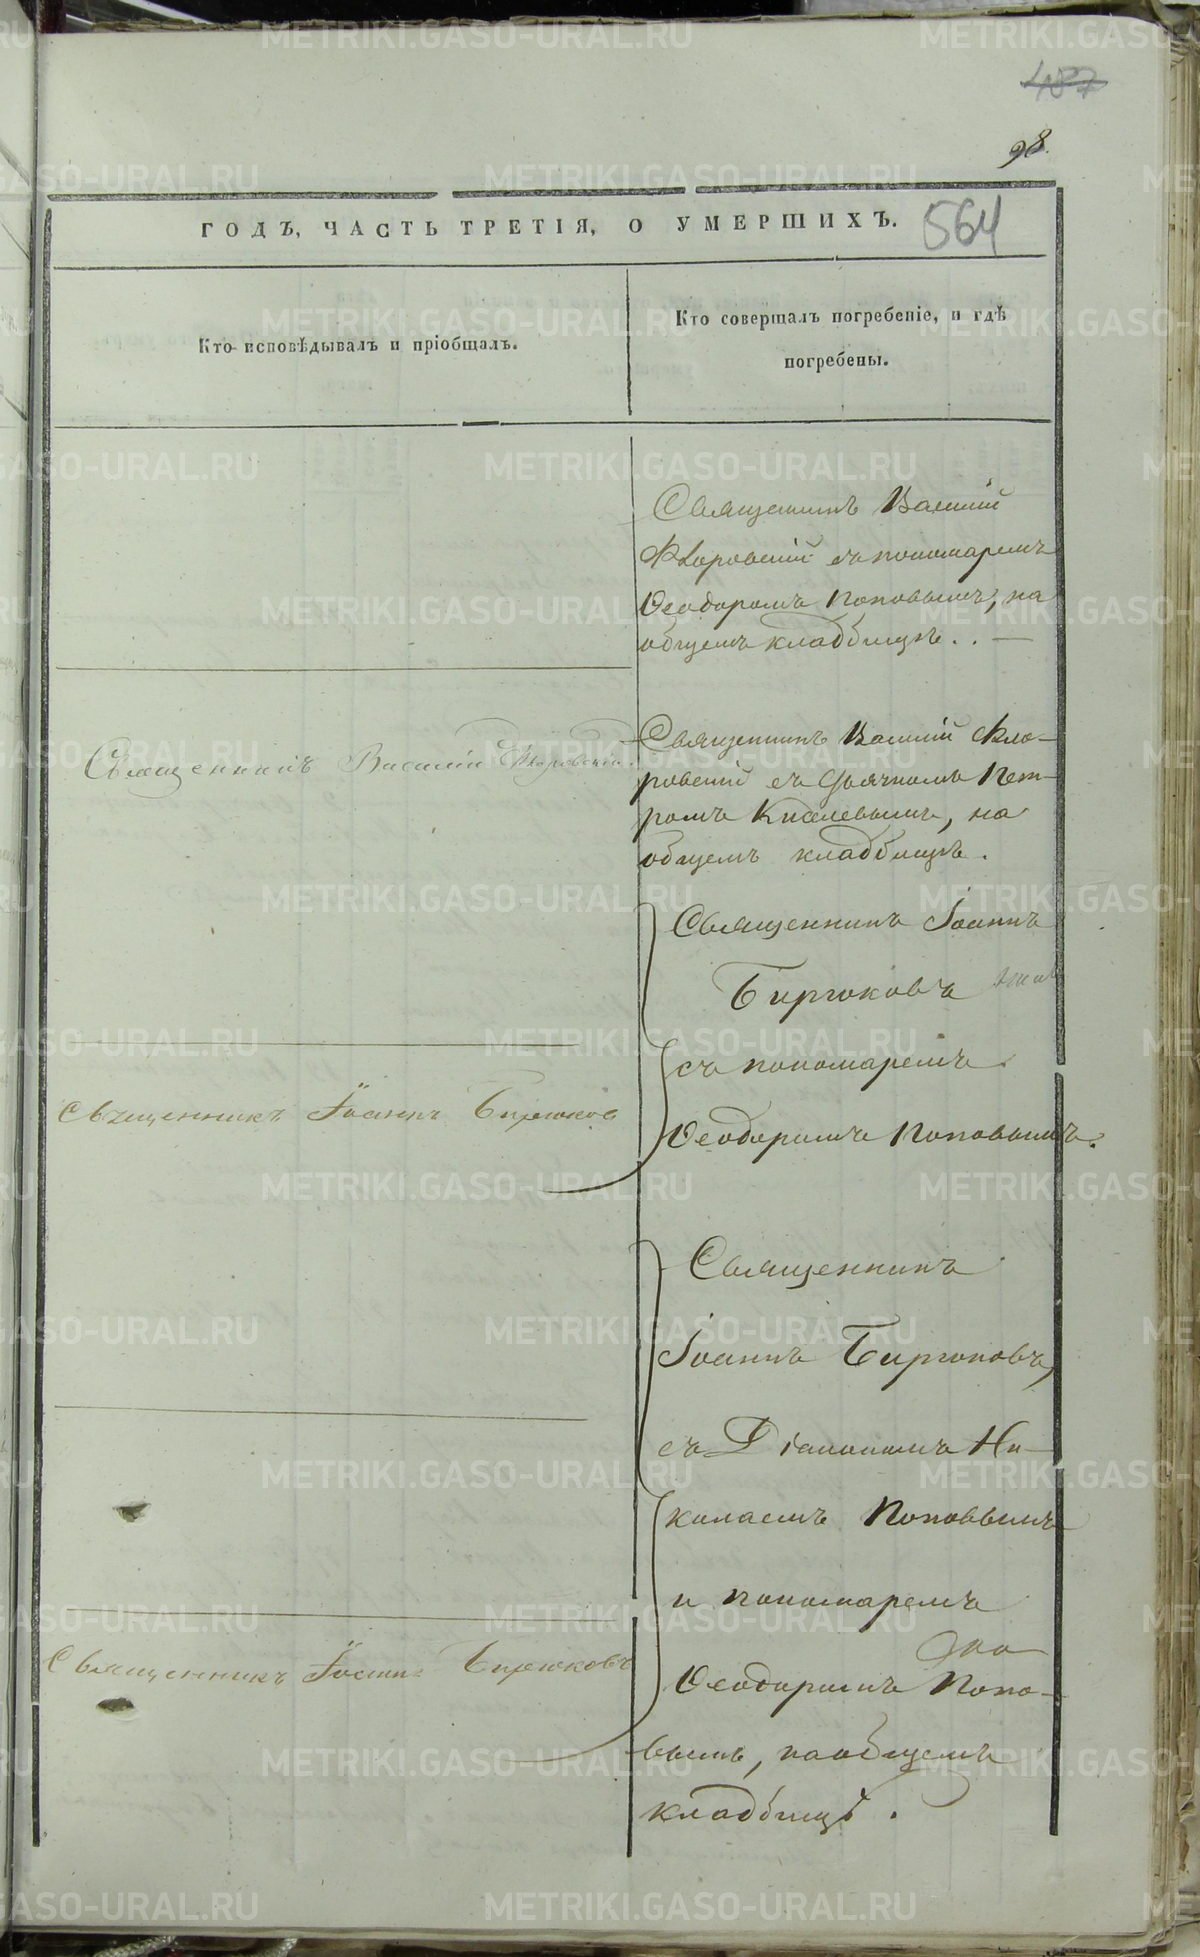 487
98.
ГОДЪ, ЧАСТЬ ТРЕТІЯ, О УМЕРШИХЪ.
564
Кто исповѣдывалъ и пріобщалъ.
Кто совершалъ погребеніе, и гдѣ
погребены.
Священникъ Василій
Флоровскій съ пономаремъ
Ѳеодоромъ Поповымъ, на
общемъ кладбищѣ. . —
Священникъ Василій Флоровскій.
Священникъ Василій Фло-
ровскій съ Дьячкомъ Пет-
ромъ Киселевымъ, на
общемъ кладбищѣ.
Священникъ Іоаннъ
Бирюковъ
съ пономаремъ
Священникъ Іоаннъ Бирюковъ
Ѳеодоромъ Поповымъ.
Священникъ
Іоаннъ Бирюковъ,
съ Діакономъ Ни-
колаемъ Поповымъ
и пономаремъ
Священникъ Іоаннъ Бирюковъ
Ѳеодоромъ Попо-
вымъ, на общемъ
кладбищѣ.
METRIKI.GASO-URAL.RU